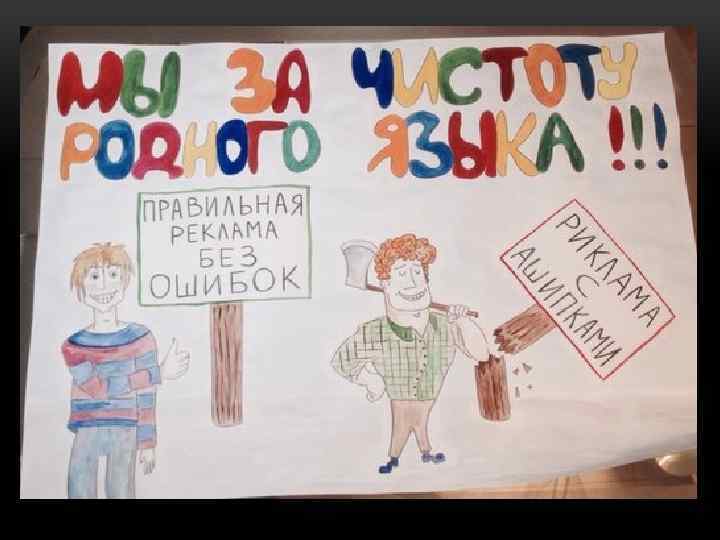 МЫ ЗА ЧИСТОТУ
РОДНОГО ЯЗЫКА !!!
ПРАВИЛЬНАЯ
РЕКЛАМА
БЕЗ
ОШИБОК
РИКЛАМА
С
АШИПКАМИ